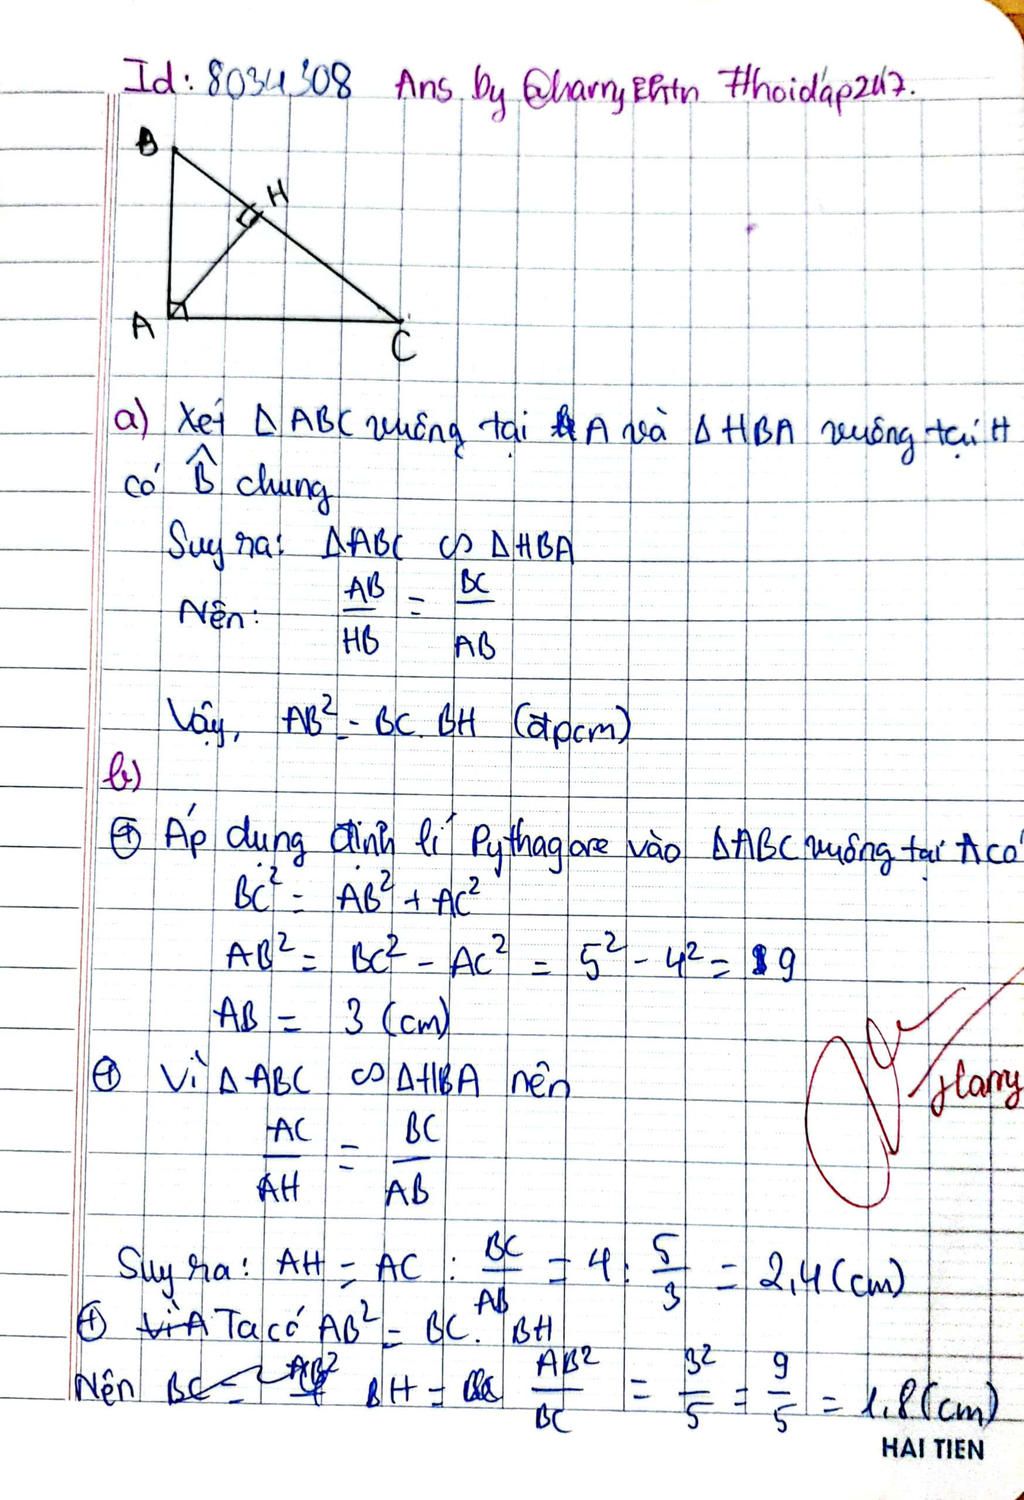 Id: 8034308 Ans by @harry #hoidap247.
B
H
A
C
a) Xét Δ ABC vuông tại A và Δ HBA vuông tại H
có B̂ chung
Suy ra: ΔABC ∽ ΔHBA
Nên: AB/HB = BC/AB
Vậy, AB² = BC. BH (đpcm)
b)
⊕ Áp dụng định lí Pythagore vào ΔABC vuông tại A có
BC² = AB² + AC²
AB² = BC² - AC² = 5² - 4² = 9
AB = 3 (cm)
⊕ Vì Δ ABC ∽ ΔHBA nên
AC/AH = BC/AB
Harry
Suy ra: AH = AC : BC/AB = 4 : 5/3 = 2,4 (cm)
⊕ Ta có AB² = BC. BH
Nên BH = AB²/BC = 3²/5 = 9/5 = 1,8 (cm)
HAI TIEN